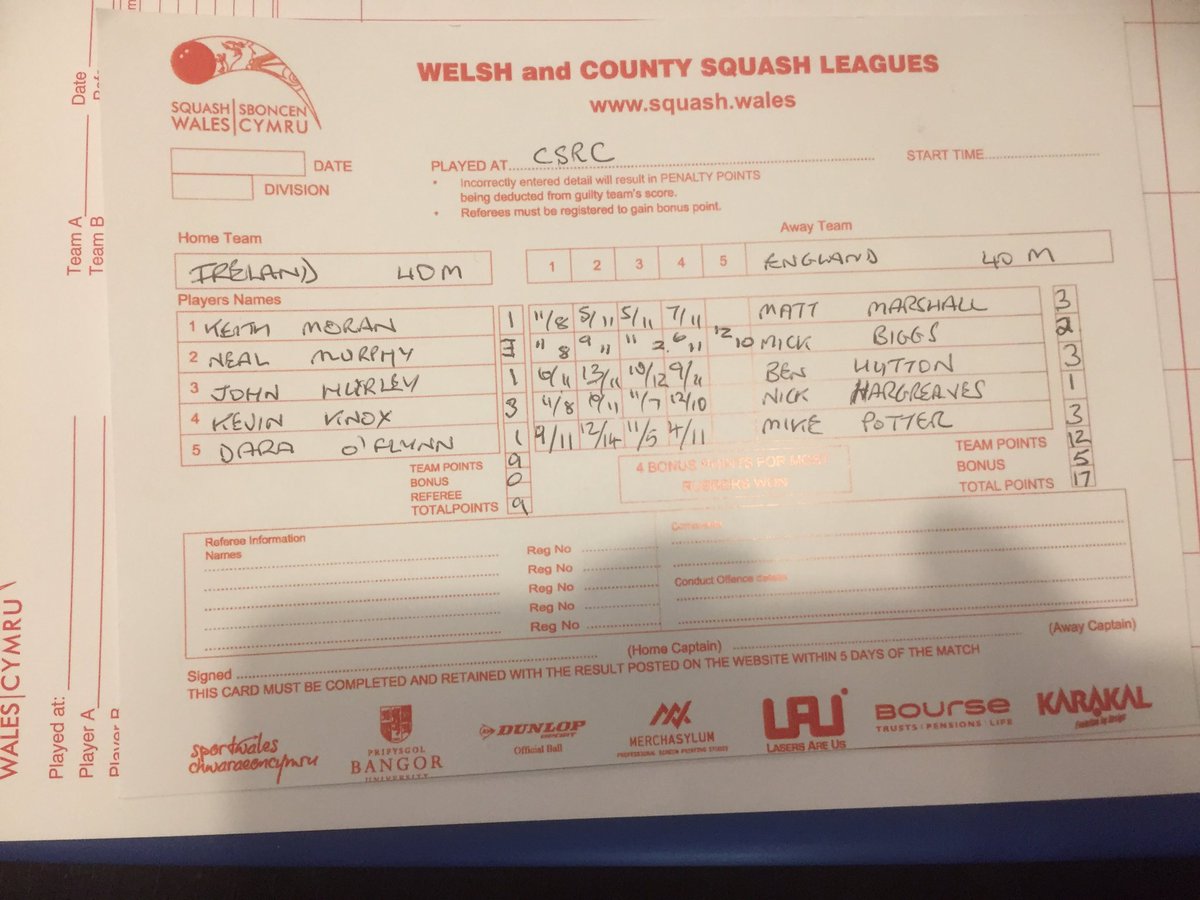 SQUASH SBONCEN
WALES CYMRU
WELSH and COUNTY SQUASH LEAGUES
www.squash.wales
DATE
DIVISION
PLAYED AT CSRC
START TIME
• Incorrectly entered detail will result in PENALTY POINTS
being deducted from guilty team's score.
• Referees must be registered to gain bonus point.
Home Team
Away Team
IRELAND 40M 1 2 3 4 5 ENGLAND 40M
Players Names
1 KEITH MORAN 1 11/8 5/11 5/11 7/11 MATT MARSHALL 3
2 NEAL MURPHY 3 11 8 9 11 11 2 6 11 12 10 MICK BIGGS 2
3 JOHN HURLEY 1 6/11 13/11 10/12 9/11 BEN HUTTON 3
4 KEVIN KNOX 3 11/8 10/11 11/7 12/10 NICK HARGREAVES 1
5 DARA O'FLYNN 1 9/11 12/14 11/5 4/11 MIKE POTTER 3
TEAM POINTS 9
BONUS 0
REFEREE
TOTALPOINTS 9
4 BONUS POINTS FOR MOST
RUBBERS WON
TEAM POINTS 12
BONUS 5
TOTAL POINTS 17
Referee Information
Names
Reg No
Reg No
Reg No
Reg No
Reg No
Comments
Conduct Offence details
Signed
(Home Captain)
(Away Captain)
THIS CARD MUST BE COMPLETED AND RETAINED WITH THE RESULT POSTED ON THE WEBSITE WITHIN 5 DAYS OF THE MATCH
sportwales
chwaraeoncymru
PRIFYSGOL
BANGOR
UNIVERSITY
DUNLOP
SPORT
Official Ball
MERCHASYLUM
PROFESSIONAL SCREEN PRINTING STUDIO
LAU
LASERS ARE US
BOURSE
TRUSTS | PENSIONS | LIFE
KARAKAL
Evolution by Design
Team A
Team B
Date
WALES CYMRU
Played at:
Player A
Player B